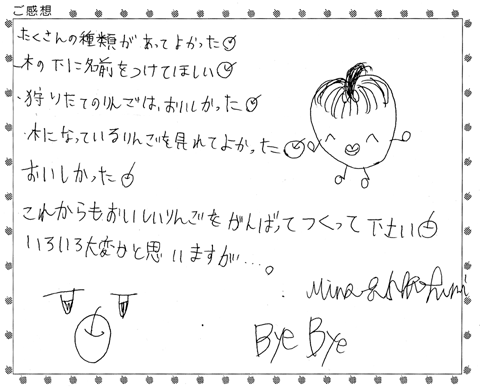 ご感想
たくさんの種類があってよかった
木の下に名前をつけてほしい
・狩りたてのりんごは、おいしかった
・木になっているりんごを見れてよかった
おいしかった
これからもおいしいりんごをがんばってつくって下さい
いろいろ大変かと思いますが…。
Bye Bye